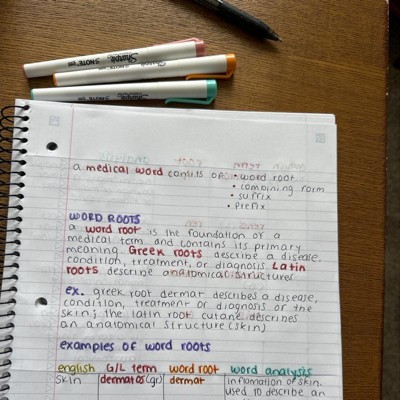 Sharpie S·NOTE
Sharpie S·NOTE
Sharpie S·NOTE
a medical word consists of: • word root
• combining form
• suffix
• prefix
WORD ROOTS
a word root is the foundation of a
medical term and contains its primary
meaning. Greek roots describe a disease,
condition, treatment, or diagnosis. Latin
roots describe anatomical structures
ex. greek root dermat describes a disease,
condition, treatment or diagnosis of the
skin; the latin root cutane describes
an anatomical structure (skin)
examples of word roots
english G/L term word root word analysis
skin dermatos (gr) dermat inflammation of skin.
used to describe an